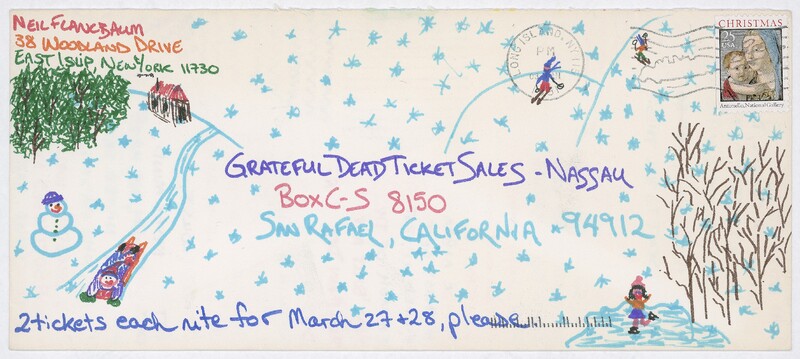 NEIL FLANCBAUM
38 WOODLAND DRIVE
EAST ISLIP, NEW YORK 11730
LONG ISLAND, NY 117
PM
CHRISTMAS
25
USA
Antonello, National Gallery
GRATEFUL DEAD TICKET SALES - NASSAU
BOX C-S 8150
SAN RAFAEL, CALIFORNIA 94912
2 tickets each nite for March 27+28, please.